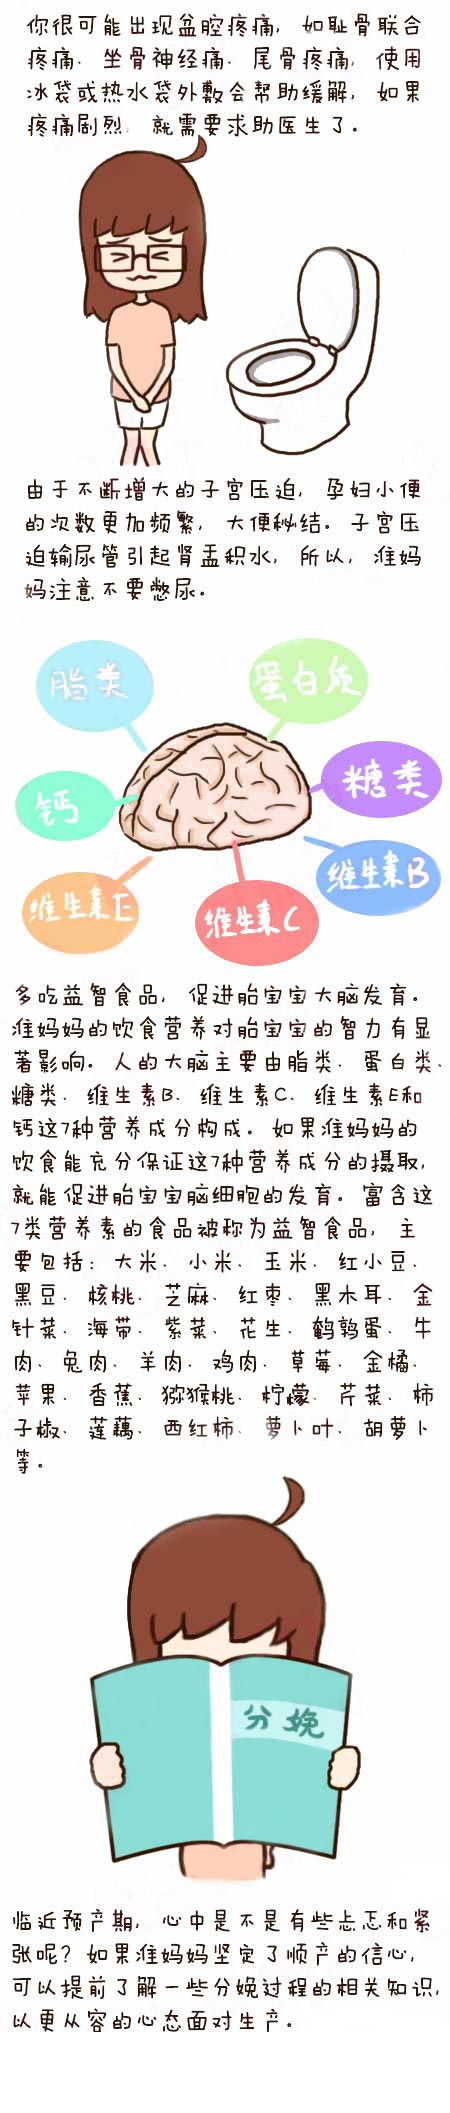 你很可能出现盆腔疼痛，如耻骨联合
疼痛、坐骨神经痛、尾骨疼痛，使用
冰袋或热水袋外敷会帮助缓解，如果
疼痛剧烈，就需要求助医生了。
由于不断增大的子宫压迫，孕妇小便
的次数更加频繁，大便秘结。子宫压
迫输尿管引起肾盂积水，所以，准妈
妈注意不要憋尿。
脂类
蛋白质
钙
糖类
维生素E
维生素C
维生素B
多吃益智食品，促进胎宝宝大脑发育。
准妈妈的饮食营养对胎宝宝的智力有显
著影响。人的大脑主要由脂类、蛋白类、
糖类、维生素B、维生素C、维生素E和
钙这7种营养成分构成。如果准妈妈的
饮食能充分保证这7种营养成分的摄取，
就能促进胎宝宝脑细胞的发育。富含这
7类营养素的食品被称为益智食品，主
要包括：大米、小米、玉米、红小豆、
黑豆、核桃、芝麻、红枣、黑木耳、金
针菜、海带、紫菜、花生、鹌鹑蛋、牛
肉、兔肉、羊肉、鸡肉、草莓、金橘、
苹果、香蕉、猕猴桃、柠檬、芹菜、柿
子椒、莲藕、西红柿、萝卜叶、胡萝卜
等。
分娩
临近预产期，心中是不是有些忐忑和紧
张呢？如果准妈妈坚定了顺产的信心，
可以提前了解一些分娩过程的相关知识，
以更从容的心态面对生产。